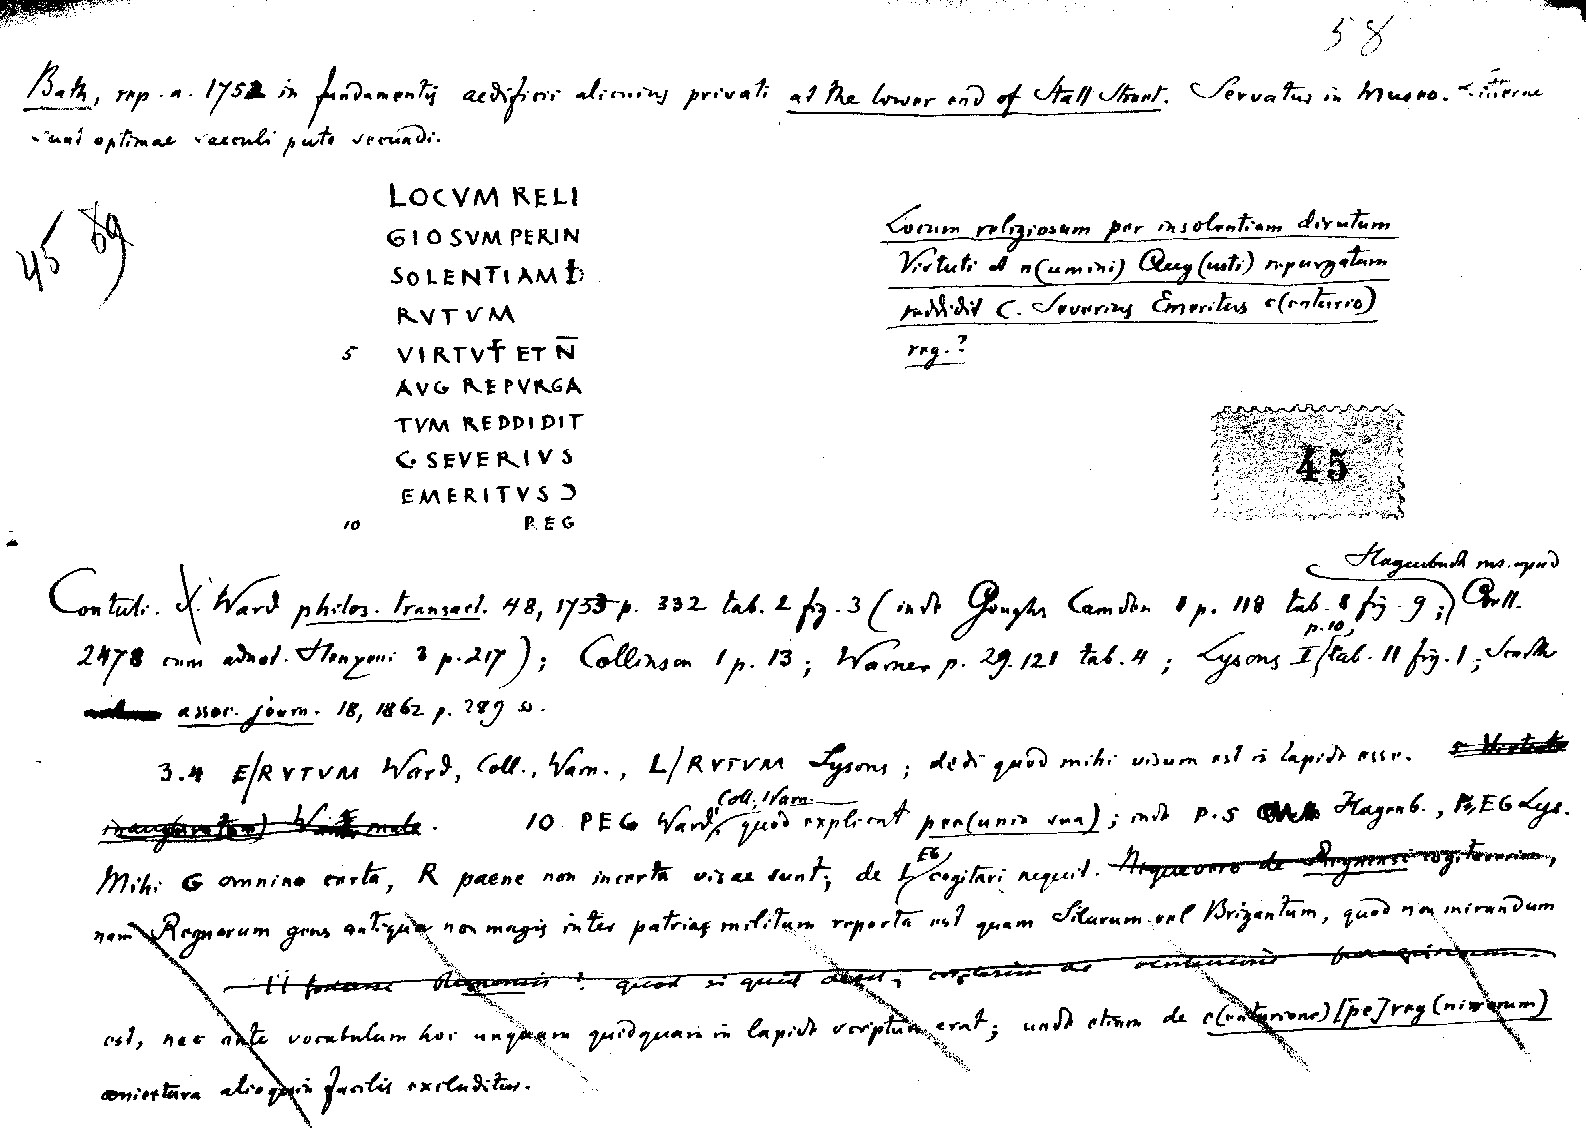 58
Bath, rep. a. 1752 in fundamentis aedificii alicuius privati at the lower end of Stall Street. Servatus in Museo. Litterae
sunt optimae saeculi puto secundi.
45 69
LOCVM RELI
GIOSVM PERIN
SOLENTIAM D
RVTVM
5 VIRTVT ET N̄
AVG REPVRGA
TVM REDDIDIT
C SEVERIVS
EMERITVS Ɔ
10 REG
Locum religiosum per insolentiam dirutum
Virtuti et n(umini) Aug(usti) repurgatum
reddidit C. Severius Emeritus c(enturio)
reg.?
45
Hagenbuch ms. apud
Contuli. Ward philos. transact. 48, 1753 p. 332 tab. 2 fig. 3 (inde Goughs Camden 1 p. 118 tab. 8 fig. 9; Orell.
2478 cum adnot. Henzeni 3 p. 217); Collinson 1 p. 13; Warner p. 29. 121 tab. 4; Lysons I p. 10, tab. 11 fig. 1; Scarth
assoc. journ. 18, 1862 p. 289 s.
3.4 E/RVTVM Ward, Coll., Warn., L/RVTVM Lysons; dedi quod mihi visum est in lapide esse.
10 PEG Ward, Coll. Warn. quod explicant pec(unia sua); inde P.S Hagenb., EG Lys.
Mihi G omnino certa, R paene non incerta visae sunt; de LEG cogitari nequit. Neque vero de Regnensi cogitaverim,
nam Regnorum gens antiqua non magis inter patrias militum reperta est quam Silurum vel Brigantum, quod non mirandum
est, nec ante vocabulum hoc unquam quidquam in lapide scriptum erat; unde etiam de c(enturione) [pe]reg(rinorum)
coniectura alioquin facilis excluditur.